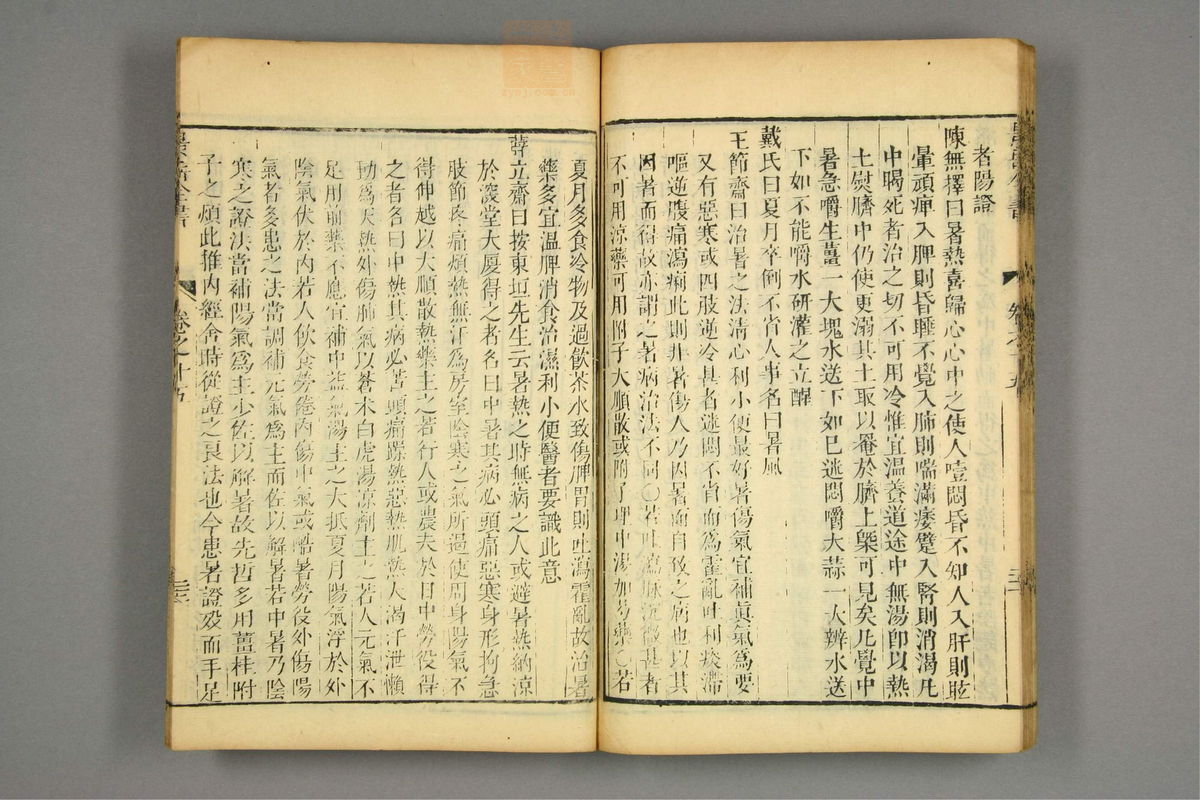 者陽證
陳無擇曰暑熱喜歸心心中之使人噎悶昏不知人入肝則眩
暈頑痺入脾則昏睡不覺入肺則喘滿痿躄入腎則消渴凡
中暍死者治之切不可用冷惟宜溫養道途中無湯卽以熱
土熨臍中仍使更溺其土取以罨於臍上槩可見矣凡覺中
暑急嚼生薑一大塊水送下如已迷悶嚼大蒜一大瓣水送
下如不能嚼水硏灌之立醒
戴氏曰夏月卒倒不省人事名曰暑風
王節齋曰治暑之法淸心利小便最好暑傷氣宜補眞氣爲要
又有惡寒或四肢逆冷甚者迷悶不省而爲霍亂吐利痰滯
嘔逆腹痛瀉痢此則非暑傷人乃因暑而自致之病也以其
因暑而得故亦謂之暑病治法不同〇若吐瀉脉沉微甚者
不可用涼藥可用附子大順散或附子理中湯加芍藥〇若
夏月多食冷物及過飮茶水致傷脾胃則吐瀉霍亂故治暑
藥多宜溫脾消食治濕利小便醫者要識此意
薛立齋曰按東垣先生云暑熱之時無病之人或避暑熱納涼
於深堂大厦得之者名曰中暑其病必頭痛惡寒身形拘急
肢節疼痛煩熱無汗爲房室陰寒之氣所遏使周身陽氣不
得伸越以大順散熱藥主之若行人或農夫於日中勞役得
之者名曰中熱其病必苦頭痛躁熱惡熱肌熱大渴汗泄懶
動爲天熱外傷肺氣以蒼朮白虎湯凉劑主之若人元氣不
足用前藥不應宜補中益氣湯主之大抵夏月陽氣浮於外
陰氣伏於內若人飮食勞倦內傷中氣或酷暑勞役外傷陽
氣者多患之法當調補元氣爲主而佐以解暑若中暑乃陰
寒之證法當補陽氣爲主少佐以解暑故先哲多用薑桂附
子之類此推內經舍時從證之良法也今患暑證歿而手足